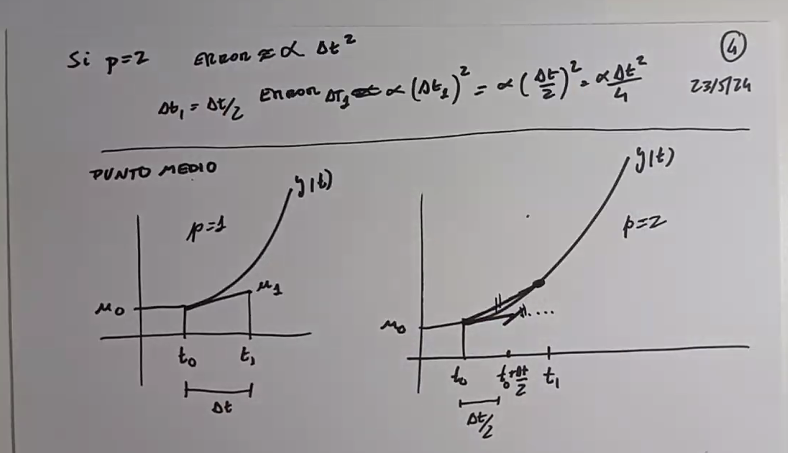 Si p=2 ERROR ≈ α Δt²
④
Δt₁ = Δt/2 ERROR ΔT₁ α (Δt₁)² = α (Δt/2)² = α Δt²/4
23/5/24
PUNTO MEDIO
y(t)
p=1
μ₀
μ₁
t₀ t₁
Δt
y(t)
p=2
μ₀
....
t₀ t₀+Δt/2 t₁
Δt/2